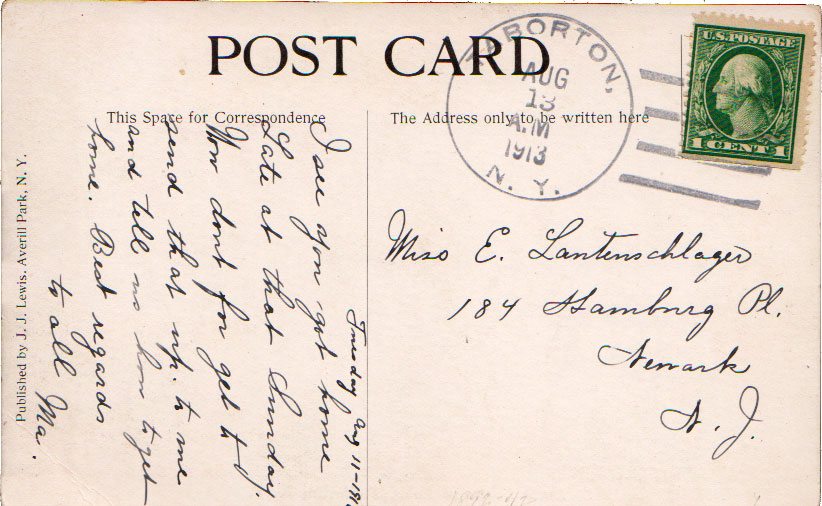 POST CARD
This Space for Correspondence
The Address only to be written here
TABORTON,
AUG
13
A.M
1913
N. Y.
U.S. POSTAGE
1 CENT 1
Tuesday Aug 11-191
I see you got home
Late at that Sunday.
Now dont for get to
send that up. to me
and tell us how to get
home. Best regards
to all Ma.
Miss E. Lantenschlager
184 Hamburg Pl.
Newark
N. J.
Published by J. J. Lewis, Averill Park, N. Y.